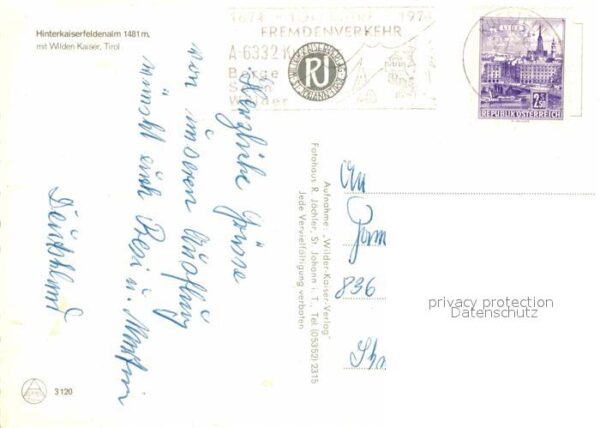 Hinterkaiserfeldenalm 1481 m,
mit Wilden Kaiser, Tirol
1974
FREMDENVERKEHR
A-6332 K
Berge
Wälder
ST. JOHANN
RJ
LINZ
2.50
REPUBLIK ÖSTERREICH
Herzliche Grüsse
von unseren Ausflug
wünscht euch Resi u. Martin
Deutschland
Aufnahme: „Wilder-Kaiser-Verlag"
Fotohaus R. Jöchler, St. Johann i. T., Tel. (05352) 2315
Jede Vervielfältigung verboten
An
Fam
836
privacy protection
Datenschutz
3120